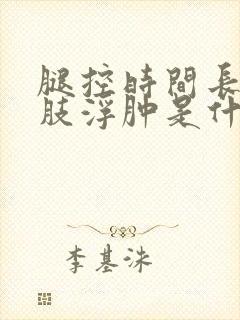 腿控時間長
肢浮肿是什
李基洙